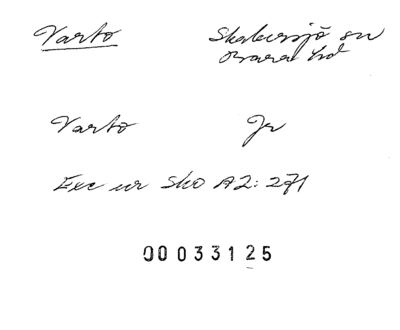 Varto Skabersjö sn
Bara hd
Varto Jr
Exc ur Sko A2: 271
00033125